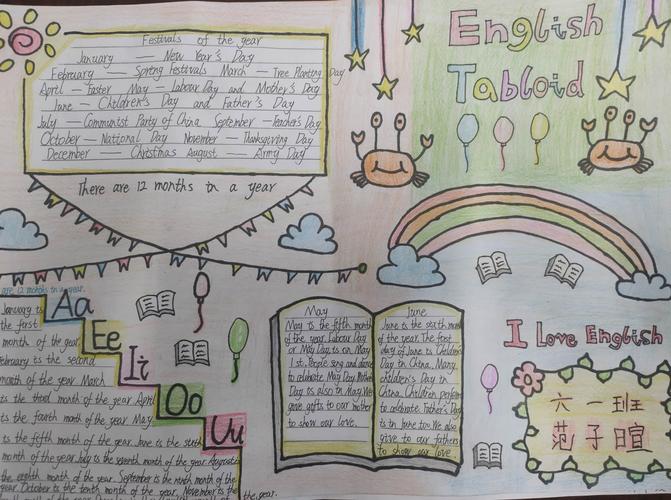 Festivals of the year
January — New Year's Day
February — Spring Festivals March — Tree Planting Day
April — Easter May — Labour Day and Mother's Day
June — Children's Day and Father's Day
July — Communist Party of China September — Teacher's Day
October — National Day November — Thanksgiving Day
December — Christmas August — Army Day
There are 12 months in a year
English
Tabloid
are 12 months in a year.
Aa
Ee
Ii
Oo
Uu
January is
the first
month of the year.
February is the second
month of the year March
is the third month of the year April
is the fourth month of the year May
is the fifth month of the year. June is the sixth
month of the year July is the seventh month of the year August is
the eighth month of the year. September is the ninth month of the
year. October is the tenth month of the year. November is the
the year.
May
May is the fifth month
of the year. Labour Day
or May Day is on May
1 st. People sing and dance
to celebrate May Day. Mother
Day is also in May. We
give gifts to our mother
to show our love.
June
June is the sixth month
of the year. The first
day of June is Children
Day in China. Many
children's Day in
China. Children perform
to celebrate. Father's Day
is in June too. We also
give to our fathers
to show our love
I Love English
六一班
范子暄